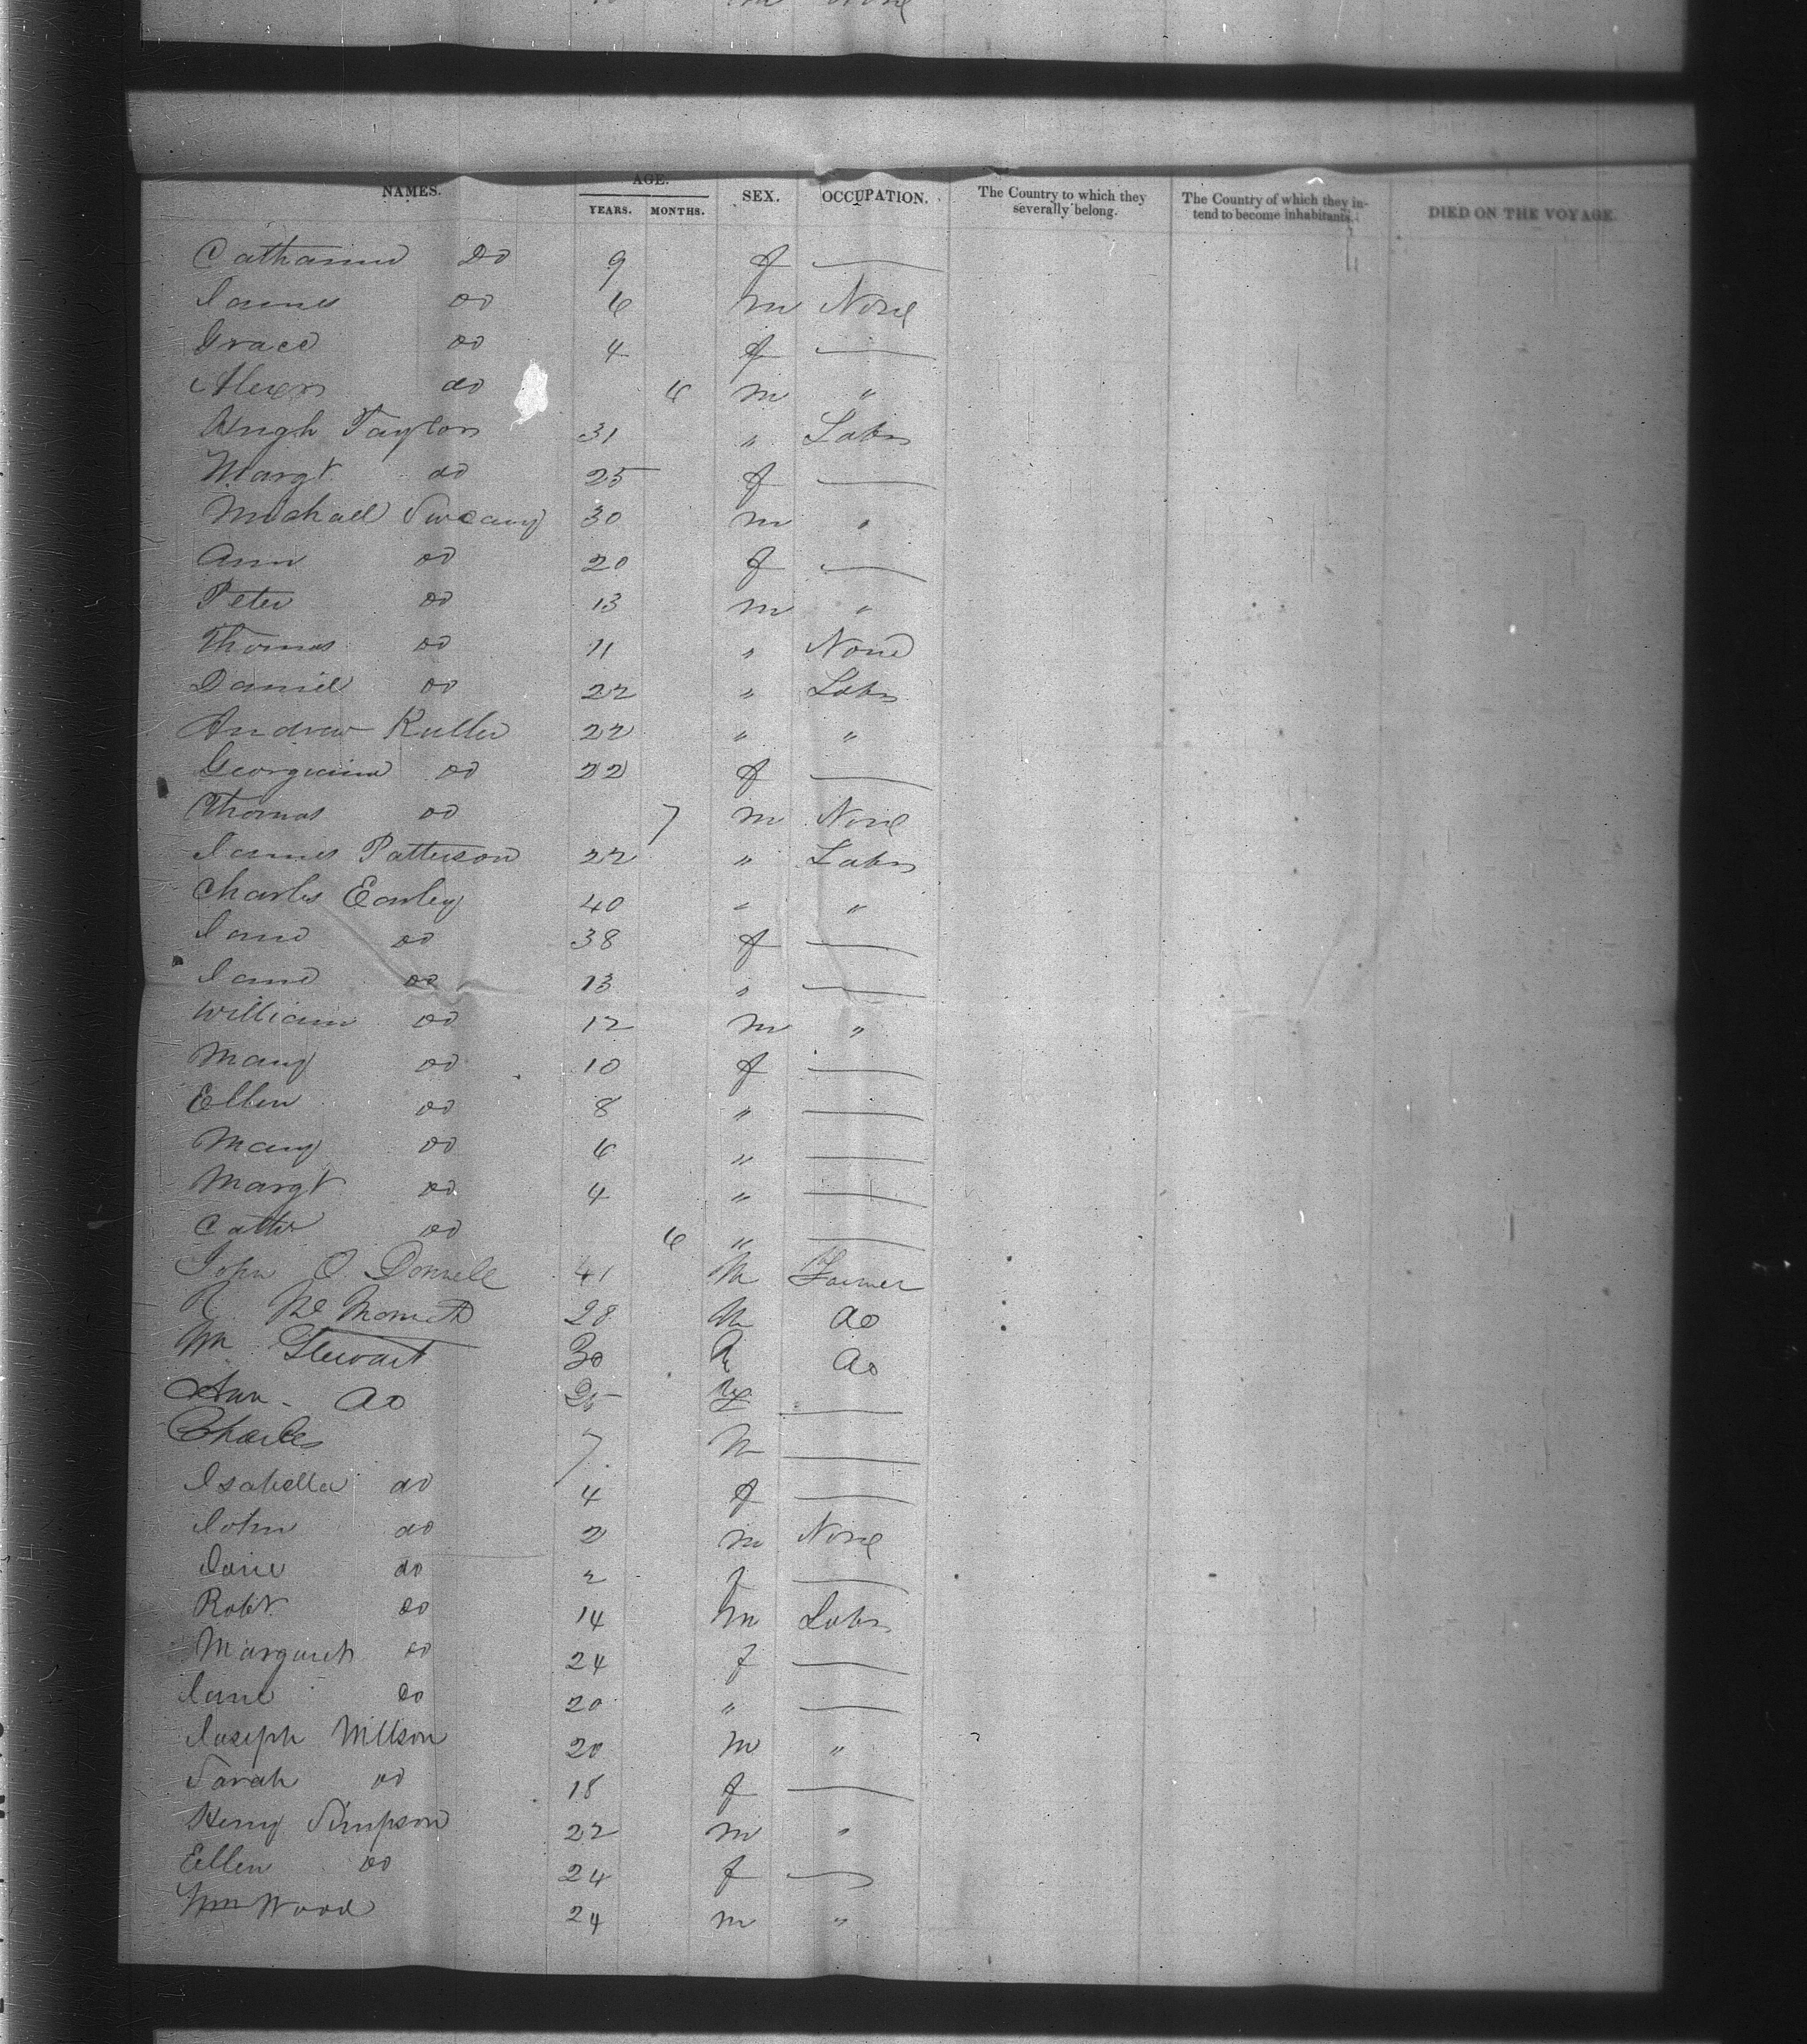 None
NAMES. AGE. YEARS. MONTHS. SEX. OCCUPATION. The Country to which they severally belong. The Country of which they intend to become inhabitants. DIED ON THE VOYAGE.
Catharine Do 9 f —
James do 6 m None
Grace do 4 f —
Alexr do 6 m "
Hugh Taylor 31 " Labr
Margt do 25 f —
Michael Sweany 30 m "
Ann do 20 f —
Peter do 13 m "
Thomas do 11 " None
Daniel do 22 " Labr
Andrew 22 " "
Georgiana do 22 f —
Thomas do 7 m None
James Patterson 22 " Labr
Charles Earley 40 " "
Jane do 38 f —
Jane do 13 " —
William do 12 m "
Mary do 10 f —
Ellen do 8 " —
Mary do 6 " —
Margt do 4 " —
do 6 " —
John O Donnell 41 M Farmer
R Mc 28 M do
Wm Stewart 30 do
Ann do 25 f —
Charles 7 M —
Isabella do 4 f —
John do 2 m None
Jane do 2 f —
Robt do 14 m Labr
Margaret do 24 f —
Jane do 20 " —
Joseph Willson 20 m "
Sarah do 18 f —
Henry Simpson 22 m "
Ellen do 24 f —
Wm Wood 24 m "